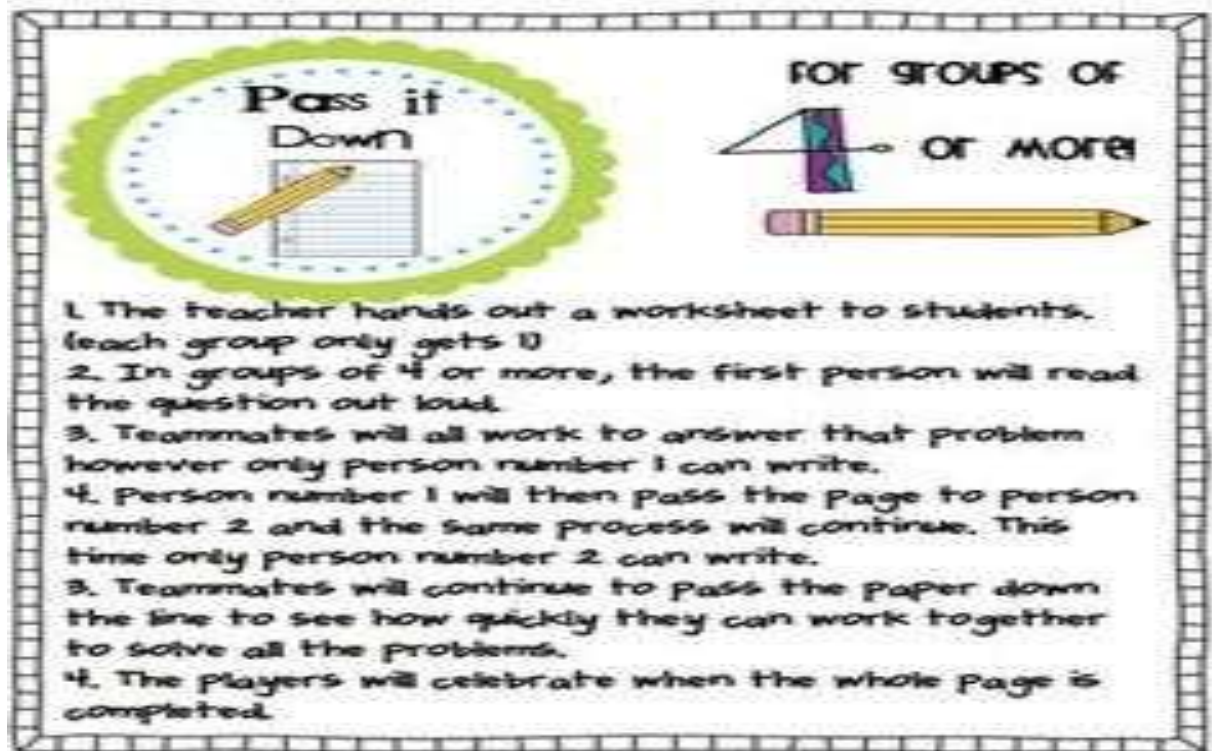 Pass it
Down
For groups of
4 or more!
1. The teacher hands out a worksheet to students.
(each group only gets 1)
2. In groups of 4 or more, the first person will read
the question out loud.
3. Teammates will all work to answer that problem
however only person number 1 can write.
4. Person number 1 will then pass the page to person
number 2 and the same process will continue. This
time only person number 2 can write.
3. Teammates will continue to pass the paper down
the line to see how quickly they can work together
to solve all the problems.
4. The players will celebrate when the whole page is
completed.